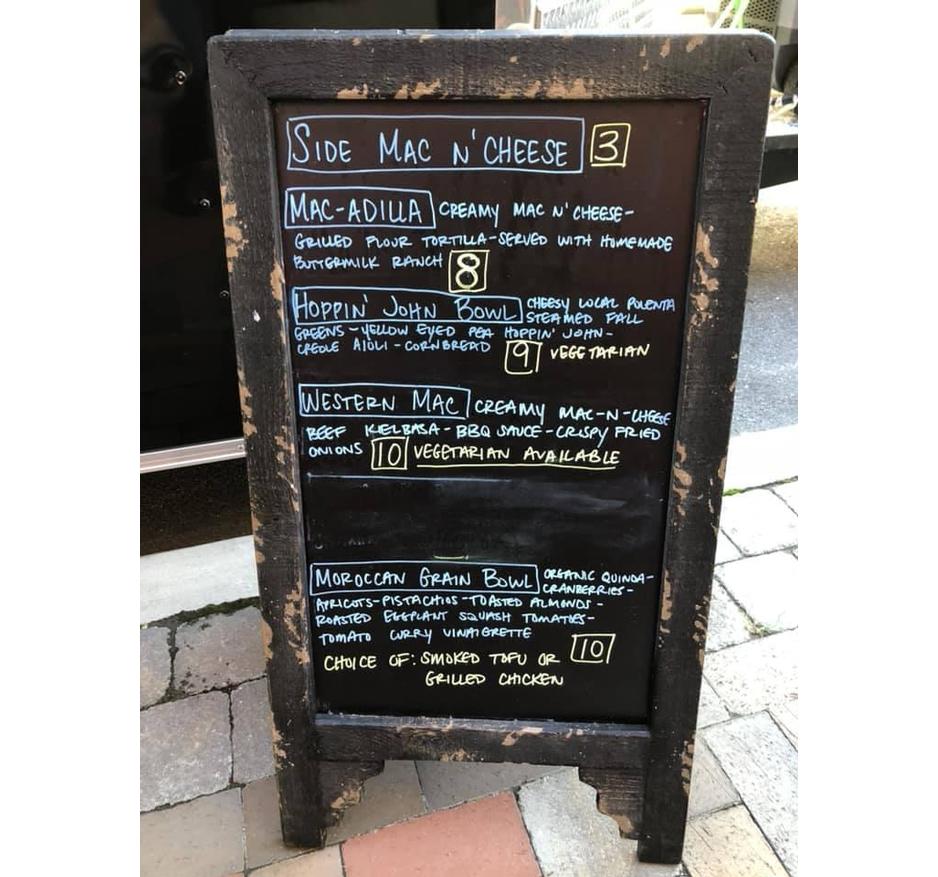 SIDE MAC N' CHEESE 3
MAC-ADILLA CREAMY MAC N' CHEESE-
GRILLED FLOUR TORTILLA-SERVED WITH HOMEMADE
BUTTERMILK RANCH 8
HOPPIN' JOHN BOWL CHEESY LOCAL POLENTA
STEAMED FALL
GREENS-YELLOW EYED PEA HOPPIN' JOHN-
CREOLE AIOLI-CORNBREAD 9 VEGETARIAN
WESTERN MAC CREAMY MAC-N-CHEESE
BEEF KIELBASA-BBQ SAUCE-CRISPY FRIED
ONIONS 10 VEGETARIAN AVAILABLE
MOROCCAN GRAIN BOWL ORGANIC QUINOA-
CRANBERRIES-
APRICOTS-PISTACHIOS-TOASTED ALMONDS-
ROASTED EGGPLANT SQUASH TOMATOES-
TOMATO CURRY VINAIGRETTE 10
CHOICE OF: SMOKED TOFU OR
GRILLED CHICKEN